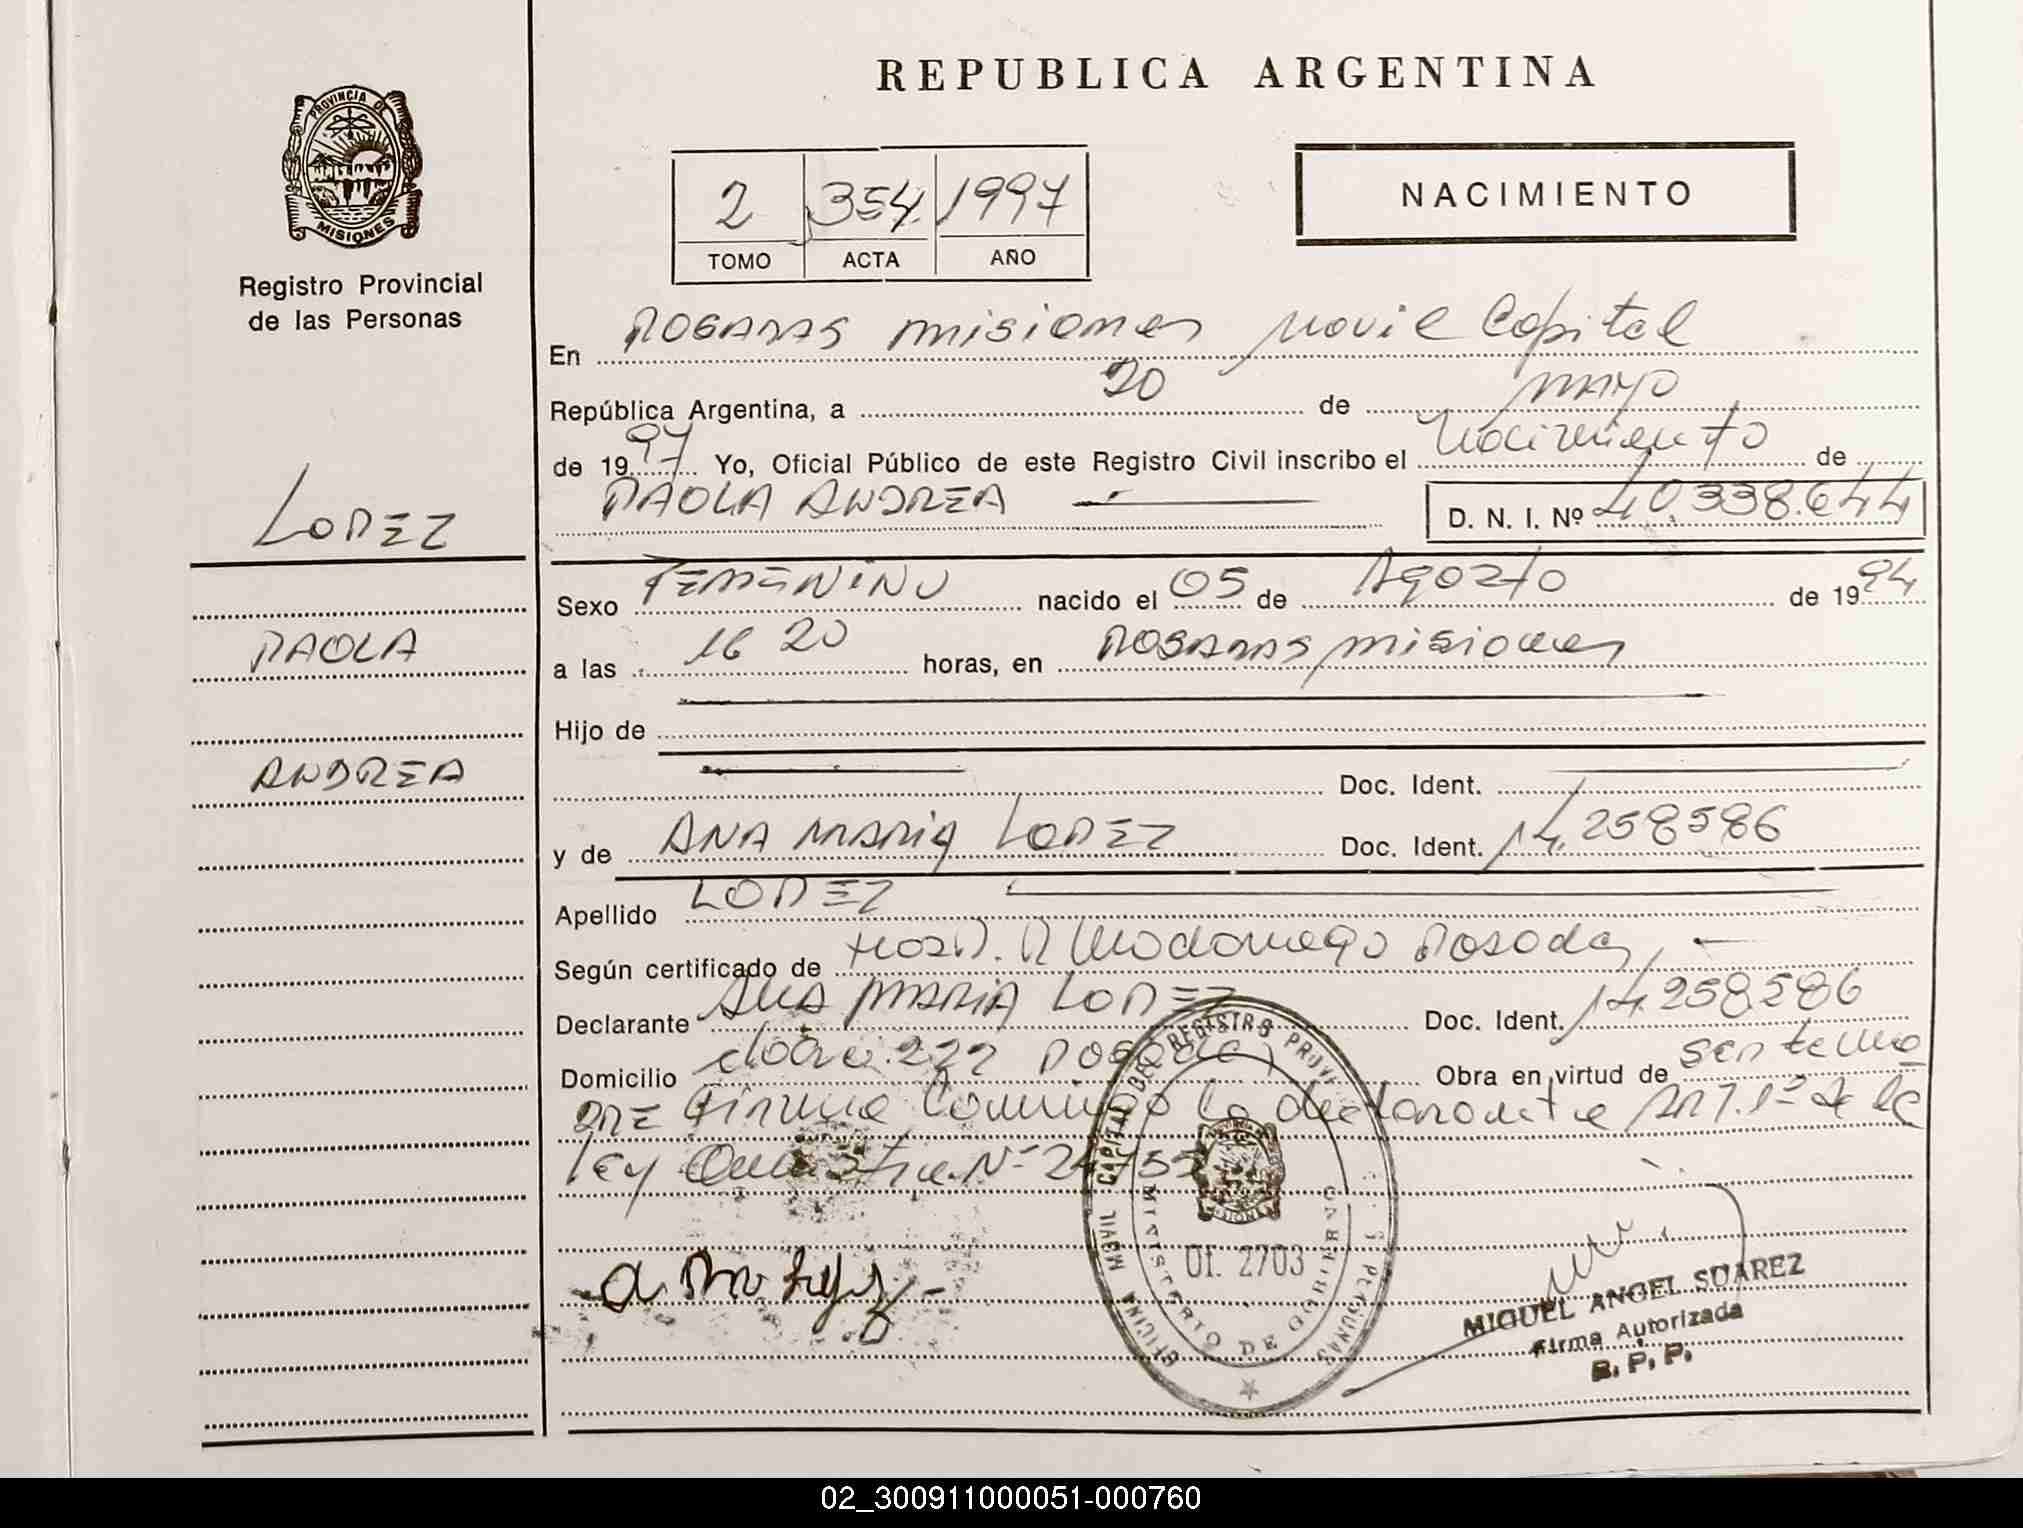 REPUBLICA ARGENTINA
PROVINCIA DE
MISIONES
Registro Provincial
de las Personas
2 354 1997
TOMO ACTA AÑO
NACIMIENTO
En POSADAS misiones Movil Capital
República Argentina, a 20 de mayo
de 1997 Yo, Oficial Público de este Registro Civil inscribo el Nacimiento de
PAOLA ANDREA D. N. I. Nº 40.338.644
LOPEZ
PAOLA
ANDREA
Sexo FEMENINO nacido el 05 de Agosto de 1994
a las 16 20 horas, en POSADAS misiones
Hijo de
Doc. Ident.
y de ANA MARIA LOPEZ Doc. Ident. 14.258586
Apellido LOPEZ
Según certificado de Hosp. R Madariaga Posadas
Declarante ANA MARIA LOPEZ Doc. Ident. 14.258586
Domicilio 222 Posadas Obra en virtud de
Firma Conmigo la declarante ART. 1º de la
ley Nº
OFICINA MOVIL CAPITAL DEL REGISTRO PROV
MINISTERIO DE GOBIERNO
01. 2703
MIGUEL ANGEL SUAREZ
Firma Autorizada
R. P. P.
02_300911000051-000760